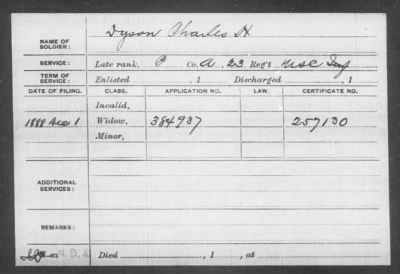 NAME OF SOLDIER: Dyson Charles H
SERVICE: Late rank, P Co. A, 23 Reg't USC Inf
TERM OF SERVICE: Enlisted , 1 Discharged , 1
DATE OF FILING. CLASS. APPLICATION NO. LAW. CERTIFICATE NO.
Invalid,
1888 Dec 1 Widow, 384937 257130
Minor,
ADDITIONAL SERVICES:
REMARKS:
Died , 1 , at